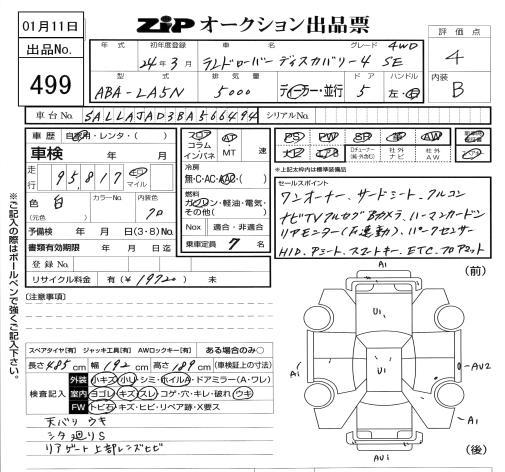 01月11日
出品No.
499
ZiP オークション出品票
評価点
4
内装
B
年式 初年度登録 車名 グレード 4WD
24年3月 ランドローバー ディスカバリー4 SE
型式 排気量 ドア ハンドル
ABA-LA5N 5000 ディーラー・並行 5 左・右
車台No. SALLAJAD3BA566494 シリアルNo.
車歴 自家用・レンタ・( )
車検 年 月
走行 95,817 km マイル
色 白 カラーNo. 内装色 クロ
(元色)
予備検 年 月 日(3・8)No.
書類有効期限 年 月 日迄
登録No.
リサイクル料金 有(¥19720) 未
フロア コラム インパネ
AT・MT 速
冷房
無・C・AC・AAC・( )
燃料
ガソリン・軽油・電気・その他( )
Nox 適合・非適合
乗車定員 7 名
PS PW SR 革 AW
ナビ 社外AW
※上記太枠内は標準装備品
セールスポイント
ワンオーナー、サードシート、フルコン
ナビTVフルセグBカメラ、ハーマンカードン
リアモニター(F連動)、パークセンサー
HID、Pシート、スマートキー、ETC、フロアマット
※ご記入の際はボールペンで強くご記入下さい。
[注意事項]
スペアタイヤ[有] ジャッキ工具[有] AWロックキー[有] ある場合のみ○
長さ485cm 幅192cm 高さ189cm (車検証上の寸法)
検査記入
外装 小キズ・小U・シミ・ホイルA・ドアミラー(A・ワレ)
室内 ヨゴレ・キズ・スレ・コゲ・穴・キレ・破れ・ウキ
FW トビ石・キズ・ヒビ・リペア跡・X要ス
天バリ ウキ
シタ廻りS
リアゲート上部レンズヒビ
(前)
A1
U1
A1
U1
AU2
A1
AU1
(後)